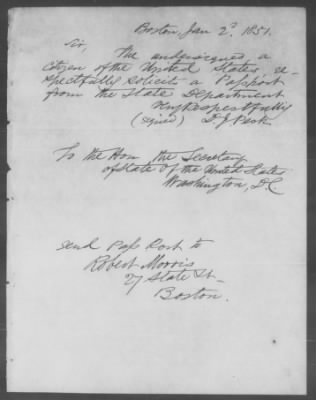 Boston, Jan 2d. 1851.
Sir,
The undersigned a
citizen of the United States, re-
spectfully solicits a Passport
from the State Department
Very Respectfully
(signed) D. J. Peck
To the Hon. the Secretary
of State of the United States
Washington, DC
Send Pass Port to
Robert Morris
27 State St.
Boston.